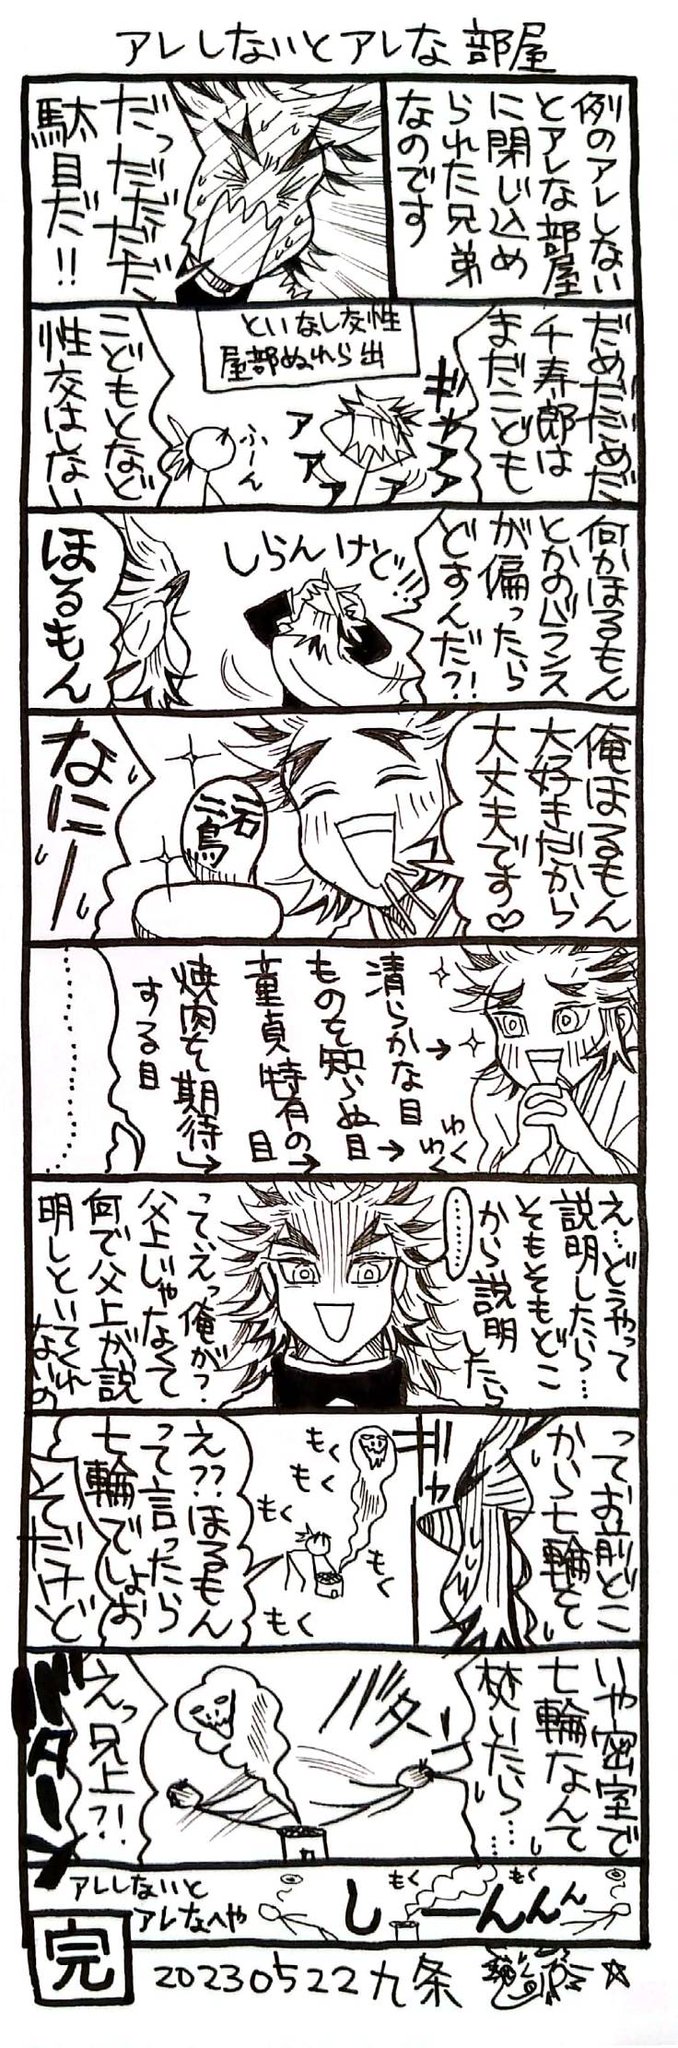 アレしないとアレな部屋
例のアレしない
とアレな部屋
に閉じ込め
られた兄弟
なのです
だっだだだだ、
駄目だ!!
だめだだめだ
千寿郎は
まだこども
ギャアアア
性交しないと
出られぬ部屋
アアアア
ふーん
こどもとなど
性交はしない
何かほるもん
とかのバランス
が偏ったら
どすんだ?!
しらんけど!!
ほるもん
俺ほるもん
大好きだから
大丈夫です♡
一石
二鳥
なにー
わく
わく
清らかな目→
ものを知らぬ目→
童貞特有の目→
焼肉を期待
する目→
………
え…どうやって
説明したら…
そもそもどこ
から説明
したら
……
って、えっ俺が?
父上じゃなくて
何で父上が説
明しといてくれ
ないの
ってお前どこ
から七輪を
ギャ
もく
もく
もく
もく
もく
え??ほるもん
って言ったら
七輪でしょお
そだけど
いや密室で
七輪なんて
焚いたら…
バターン
えっ兄上?!
バターン
もく
もく
しーーんんん
アレしないと
アレなへや
完
20230522九条